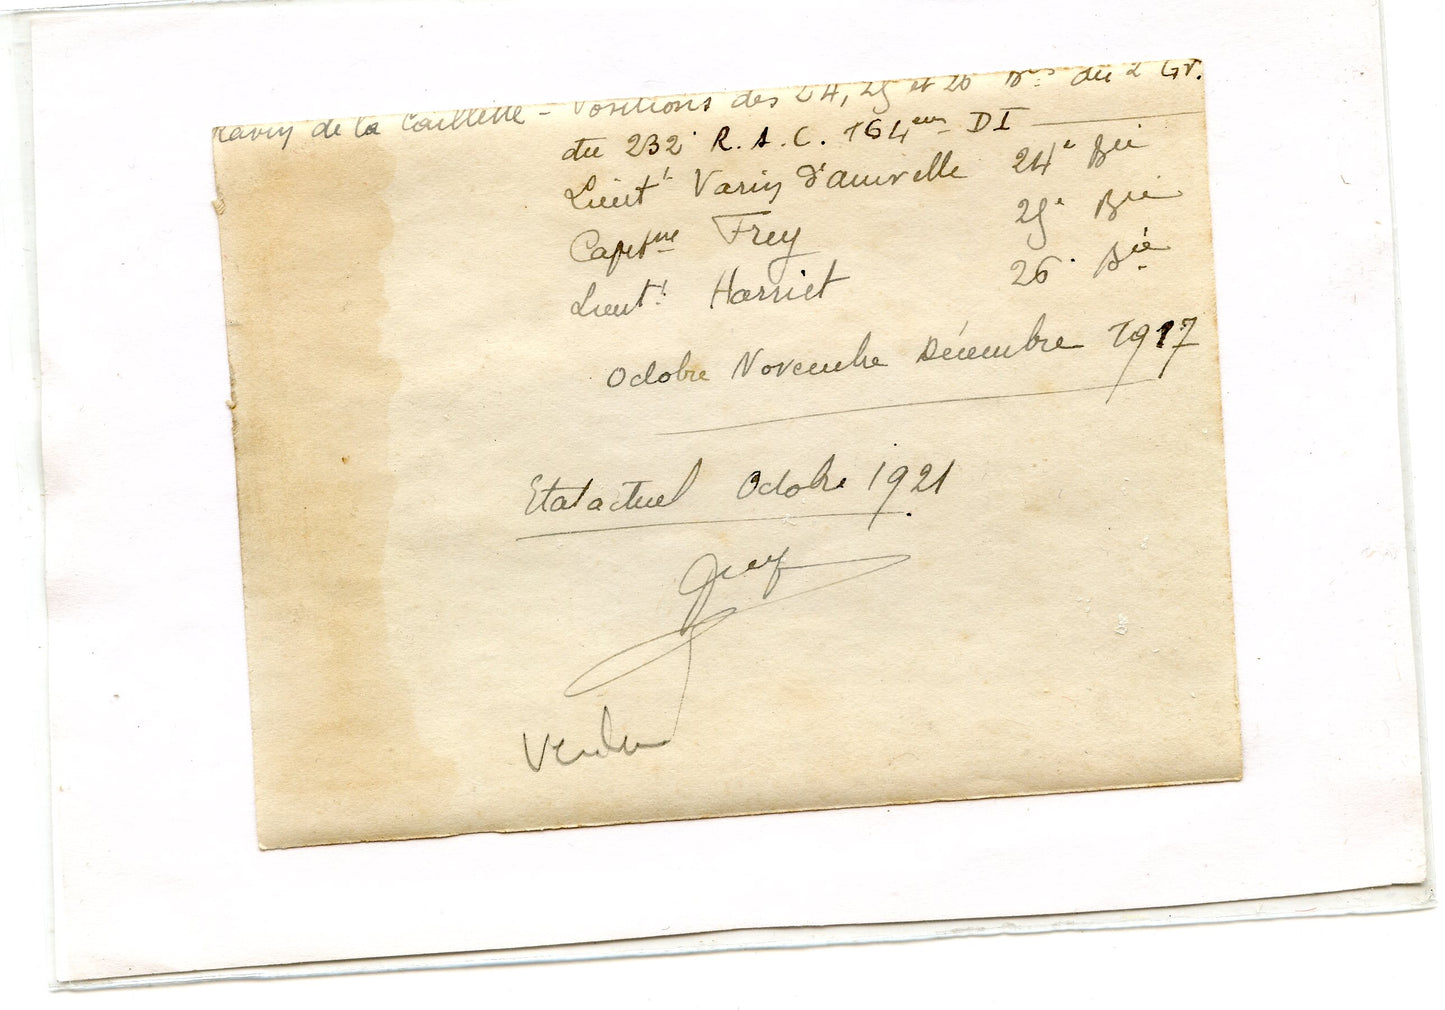 Ravin de la Caillette - Positions des 24, 25 et 26 Bies du 2 Gr.
du 232e R.A.C. 164eme DI
Lieutt Varin d'ainvelle 24e Bie
Capitne Frey 25e Bie
Lieutt Harriet 26e Bie
Octobre Novembre Décembre 1917
Etat actuel Octobre 1921
Frey
Verdun